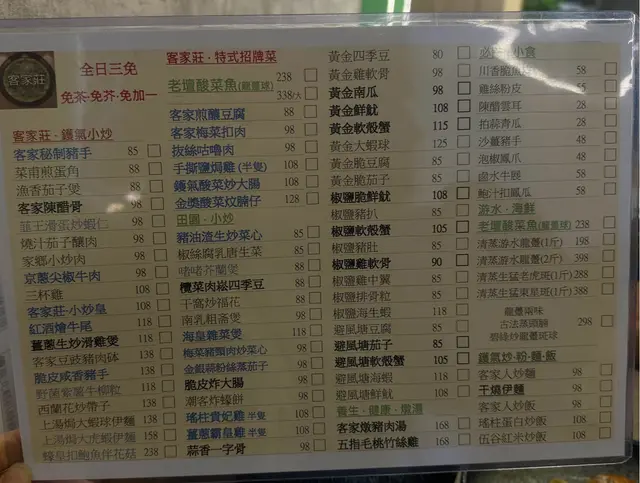 客家莊
全日三免
免茶‧免芥‧免加一
客家莊‧鑊氣小炒
客家秘制豬手 85
菜甫煎蛋角 88
漁香茄子煲 88
客家陳醋骨 98
韮王滑蛋炒蝦仁 98
燒汁茄子釀肉 98
家鄉小炒肉 98
京蔥尖椒牛肉 98
三杯雞 108
客家莊‧小炒皇 108
紅酒燴牛尾 118
薑蔥生炒滑雞煲 118
客家豆豉豬肉缽 138
脆皮咸香豬手 138
野菌紫薯牛柳粒 118
西蘭花炒帶子 138
上湯焗大蝦球伊麵 138
上湯焗大虎蝦伊麵 158
蠔皇扣鮑魚伴花菇 238
客家莊‧特式招牌菜
老壇酸菜魚(龍躉球) 238
338/大
客家煎釀豆腐 88
客家梅菜扣肉 98
拔絲咕嚕肉 98
手撕鹽焗雞(半隻) 108
鑊氣酸菜炒大腸 108
金獎酸菜炆腩仔 128
田園‧小炒
豬油渣生炒菜心 85
椒絲腐乳唐生菜 85
啫啫芥蘭煲 88
欖菜肉崧四季豆 88
干窩炒福花 88
南乳粗斎煲 98
海皇雜菜煲 118
梅菜豬頸肉炒菜心 98
金銀蒜粉絲蒸茄子 98
脆皮炸大腸 98
潮客炸蠔餅 98
瑤柱貴妃雞 半隻 108
薑蔥霸皇雞 半隻 108
蒜香一字骨 98
黃金四季豆 80
黃金雞軟骨 98
黃金南瓜 98
黃金鮮魷 108
黃金軟殼蟹 115
黃金大蝦球 125
黃金脆豆腐 85
黃金脆茄子 85
椒鹽脆鮮魷 108
椒鹽豬扒 85
椒鹽軟殼蟹 105
椒鹽豬肚 85
椒鹽雞軟骨 90
椒鹽雞中翼 85
椒鹽排骨粒 85
椒鹽海生蝦 118
避風塘豆腐 85
避風塘茄子 85
避風塘軟殼蟹 105
避風塘海蝦 118
避風塘鮮魷 108
養生‧健康‧燉湯
客家燉豬肉湯 168
五指毛桃竹絲雞 168
小食
川香脆魚 58
雞絲粉皮 55
陳醋雲耳 28
拍蒜青瓜 28
沙薑豬手 48
泡椒鳳爪 48
鹵水牛𦟌 58
鮑汁扣鳳爪 58
游水‧海鮮
老壇酸菜魚(龍躉球) 238
清蒸游水龍躉(1斤) 198
清蒸游水龍躉(2斤) 298
清蒸生猛老虎斑(1斤) 288
清蒸生猛東星斑(1斤) 388
龍躉兩味
古法蒸頭腩 298
碧綠炒龍躉斑球
鑊氣炒‧粉‧麵‧飯
客家人炒麵 98
干燒伊麵 98
客家人炒飯 98
瑤柱蛋白炒飯 108
伍谷紅米炒飯 108